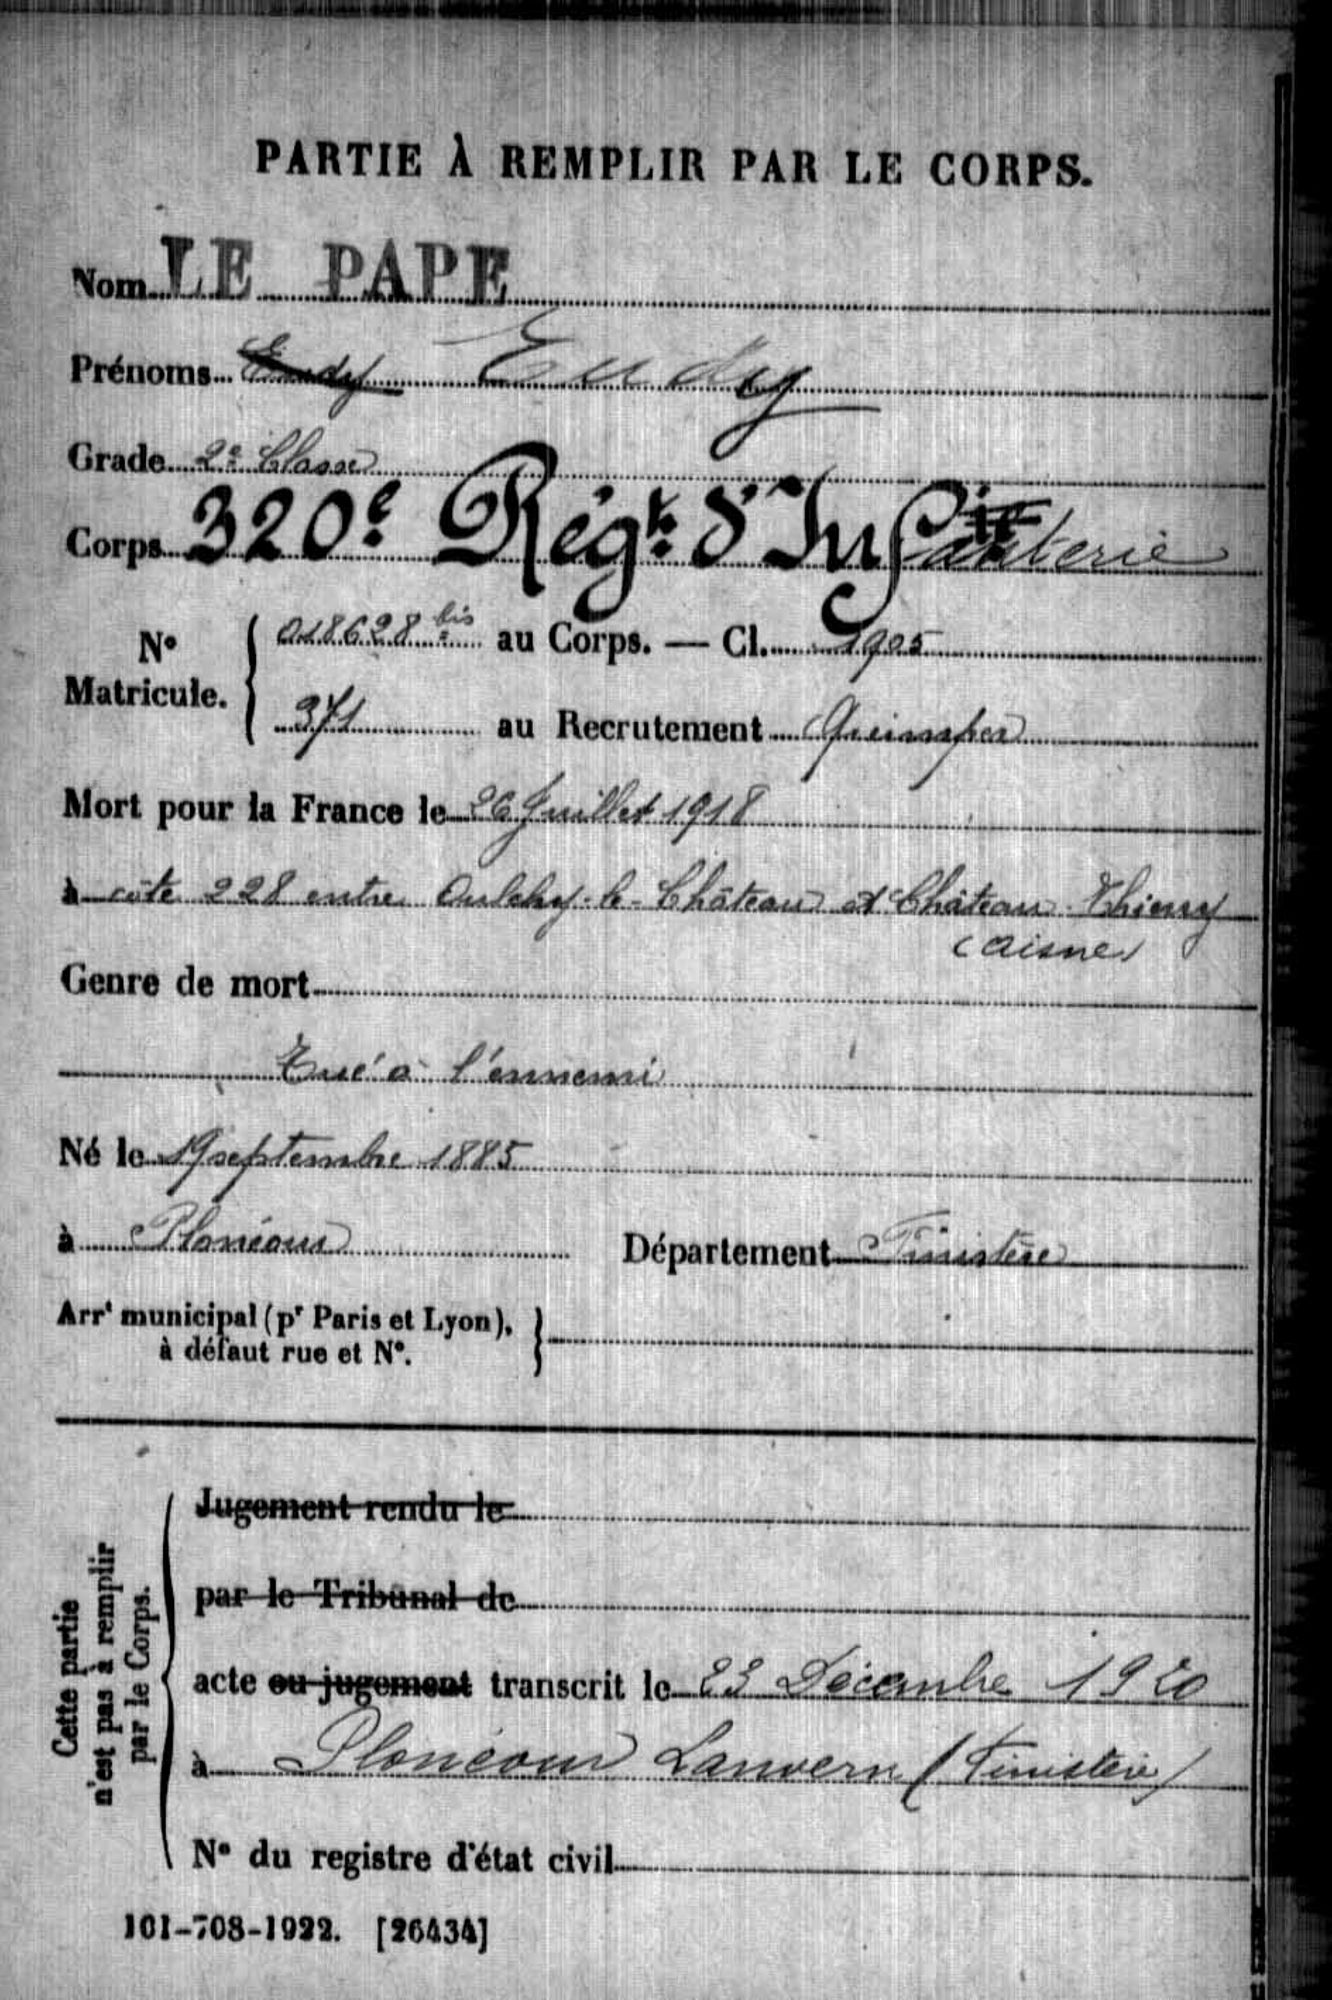 PARTIE À REMPLIR PAR LE CORPS.
Nom LE PAPE
Prénoms Eudy Eudy
Grade 2e Classe
Corps 320e Régt. d'Infanterie
No Matricule. { 018628 bis au Corps. — Cl. 1905
371 au Recrutement Quimper
Mort pour la France le 26 Juillet 1918
à côte 228 entre Oulchy-le-Château et Château-Thierry
(Aisne)
Genre de mort
Tué à l'ennemi
Né le 19 septembre 1885
à Plonéour Département Finistère
Arrt municipal (pr Paris et Lyon), }
à défaut rue et No.
Cette partie
n'est pas à remplir
par le Corps.
Jugement rendu le
par le Tribunal de
acte ou jugement transcrit le 23 Décembre 1920
à Plonéour Lanvern (Finistère)
No du registre d'état civil
101-708-1922. [26434]